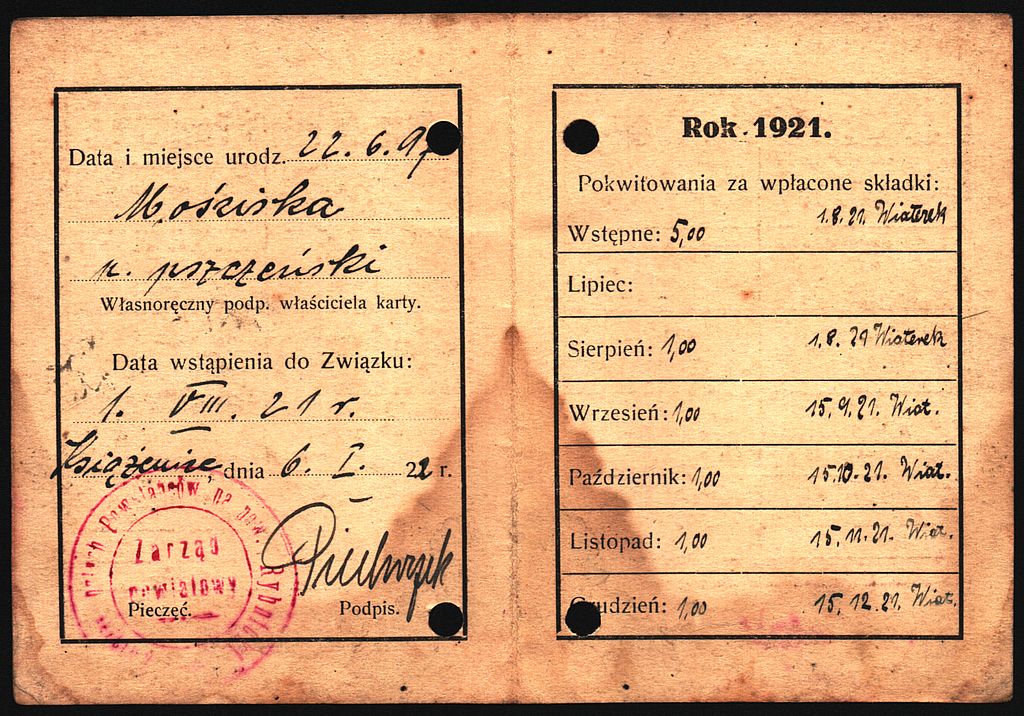 Data i miejsce urodz. 22. 6. 97
Mościska
p. pszczeński
Własnoręczny podp. właściciela karty.
Data wstąpienia do Związku:
1. VIII. 21 r.
Książenice, dnia 6. I. 22 r.
Powstańców na pow. Rybnicki
Zarząd
powiatowy
Pieczęć. Podpis.
Rok 1921.
Pokwitowania za wpłacone składki:
Wstępne: 5,00 1.8.21. Wiaterek
Lipiec:
Sierpień: 1,00 1.8.21 Wiaterek
Wrzesień: 1,00 15.9.21. Wiat.
Październik: 1,00 15.10.21. Wiat.
Listopad: 1,00 15.11.21. Wiat.
Grudzień: 1,00 15.12.21. Wiat.